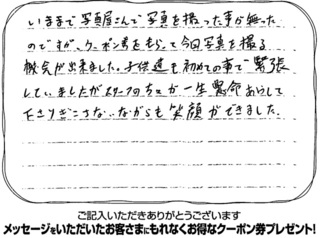 いままで写真屋さんで写真を撮った事が無った
のですが、クーポン券をもらって今回写真を撮る
機会が出来ました。子供達も初めての事で緊張
していましたがスタッフの方々が一生懸命あやして
下さりぎこちないながらも笑顔ができました。
ご記入いただきありがとうございます
メッセージをいただいたお客さまにもれなくお得なクーポン券プレゼント!